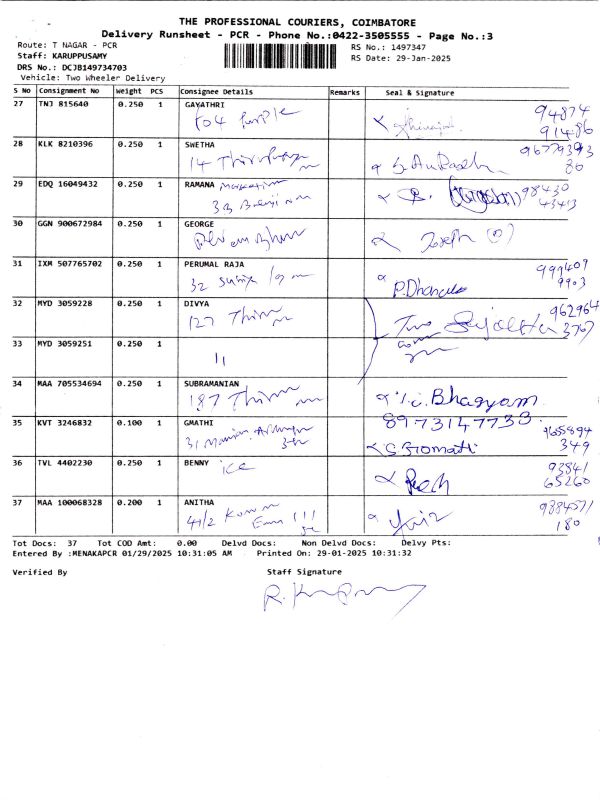 THE PROFESSIONAL COURIERS, COIMBATORE
Delivery Runsheet - PCR - Phone No.:0422-3505555 - Page No.:3
Route: T NAGAR - PCR
Staff: KARUPPUSAMY
DRS No.: DCJB149734703
Vehicle: Two Wheeler Delivery
RS No.: 1497347
RS Date: 29-Jan-2025
S No Consignment No Weight PCS Consignee Details Remarks Seal & Signature
27 TNJ 815640 0.250 1 GAYATHRI
604 Purple
94874
91486
28 KLK 8210396 0.250 1 SWETHA
14
29 EDQ 16049432 0.250 1 RAMANA
33
98430
43413
30 GGN 900672984 0.250 1 GEORGE
Joseph
31 IXM 507765702 0.250 1 PERUMAL RAJA
32
P.Dhanu
999409
9903
32 MYD 3059228 0.250 1 DIVYA
127
Two Sujatha
962964
3767
33 MYD 3059251 0.250 1
11
34 MAA 705534694 0.250 1 SUBRAMANIAN
187
Bhagyam
8973147733
35 KVT 3246832 0.100 1 GMATHI
31
Gomathi
9655894
349
36 TVL 4402230 0.250 1 BENNY
ICE
93841
65260
37 MAA 100068328 0.200 1 ANITHA
41/2
9884571
180
Tot Docs: 37 Tot COD Amt: 0.00 Delvd Docs: Non Delvd Docs: Delvy Pts:
Entered By :MENAKAPCR 01/29/2025 10:31:05 AM Printed On: 29-01-2025 10:31:32
Verified By Staff Signature